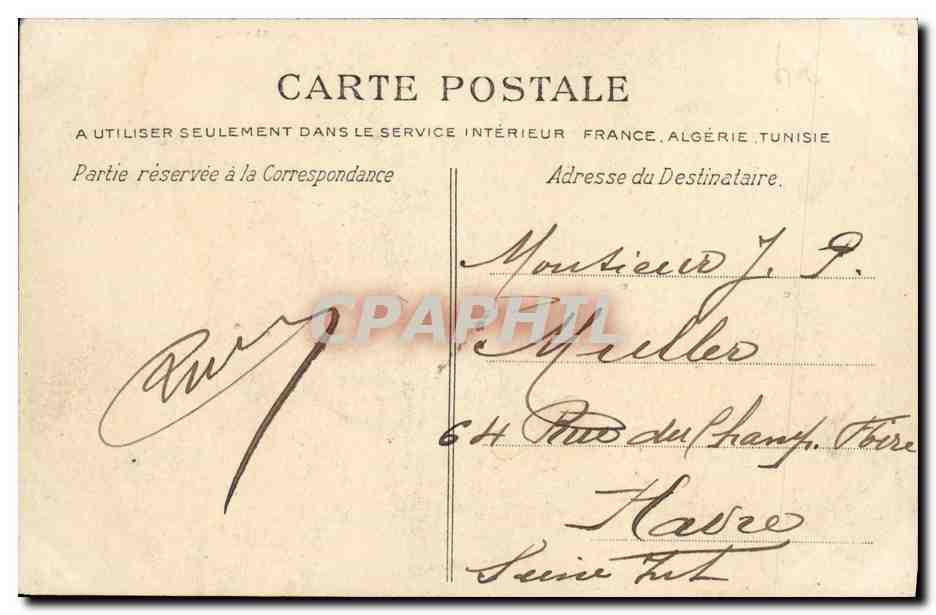 CARTE POSTALE
A UTILISER SEULEMENT DANS LE SERVICE INTÉRIEUR FRANCE, ALGÉRIE, TUNISIE
Partie réservée à la Correspondance
Adresse du Destinataire.
CPAPHIL
Monsieur J. P.
Muller
64 Rue du Champ. Foire
Havre
Seine Inf